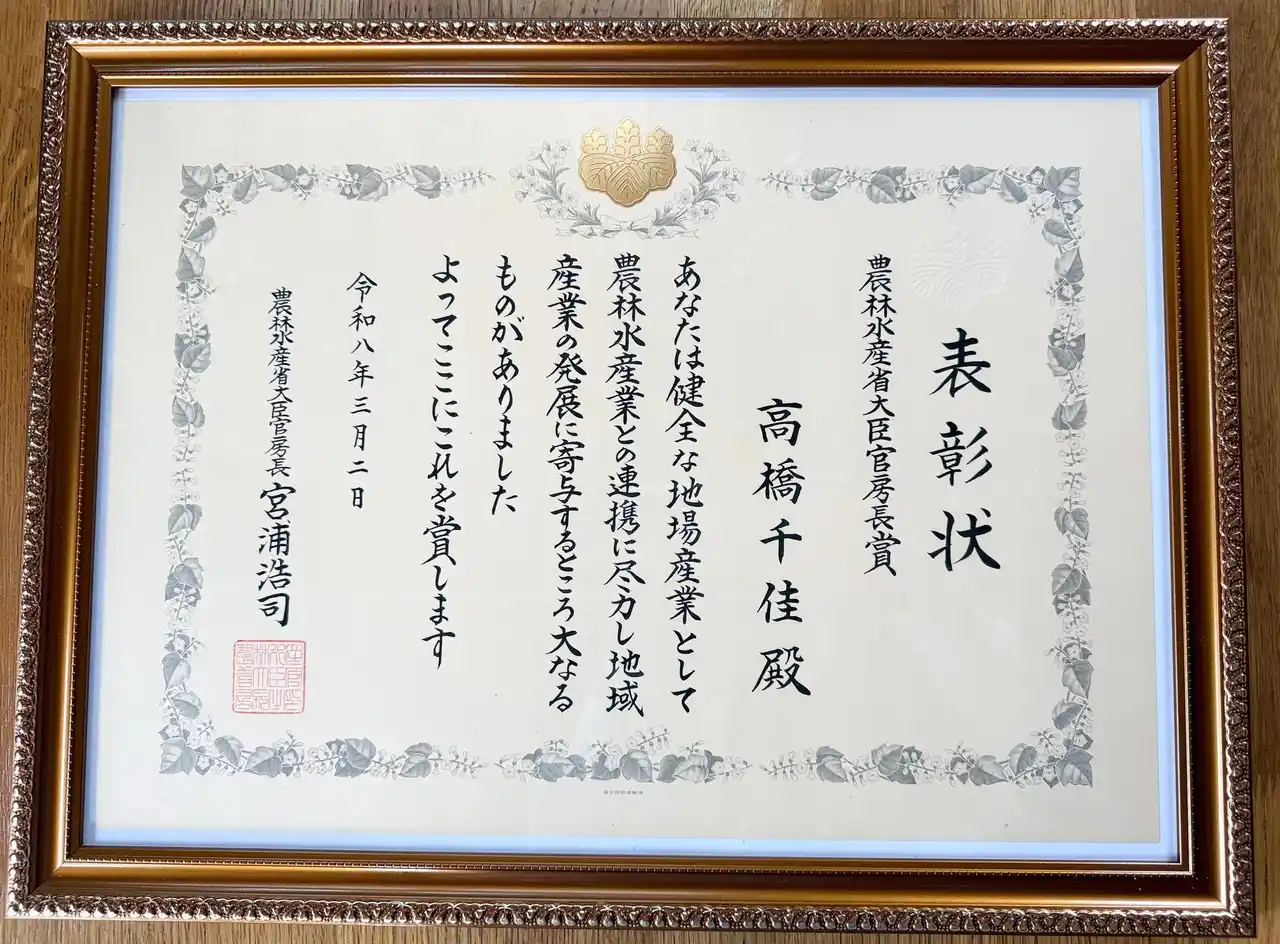 表彰状
農林水産省大臣官房長賞
高橋千佳殿
あなたは健全な地場産業として
農林水産業との連携に尽力し地域
産業の発展に寄与するところ大なる
ものがありました
よってここにこれを賞します
令和八年三月二日
農林水産省大臣官房長 宮浦浩司